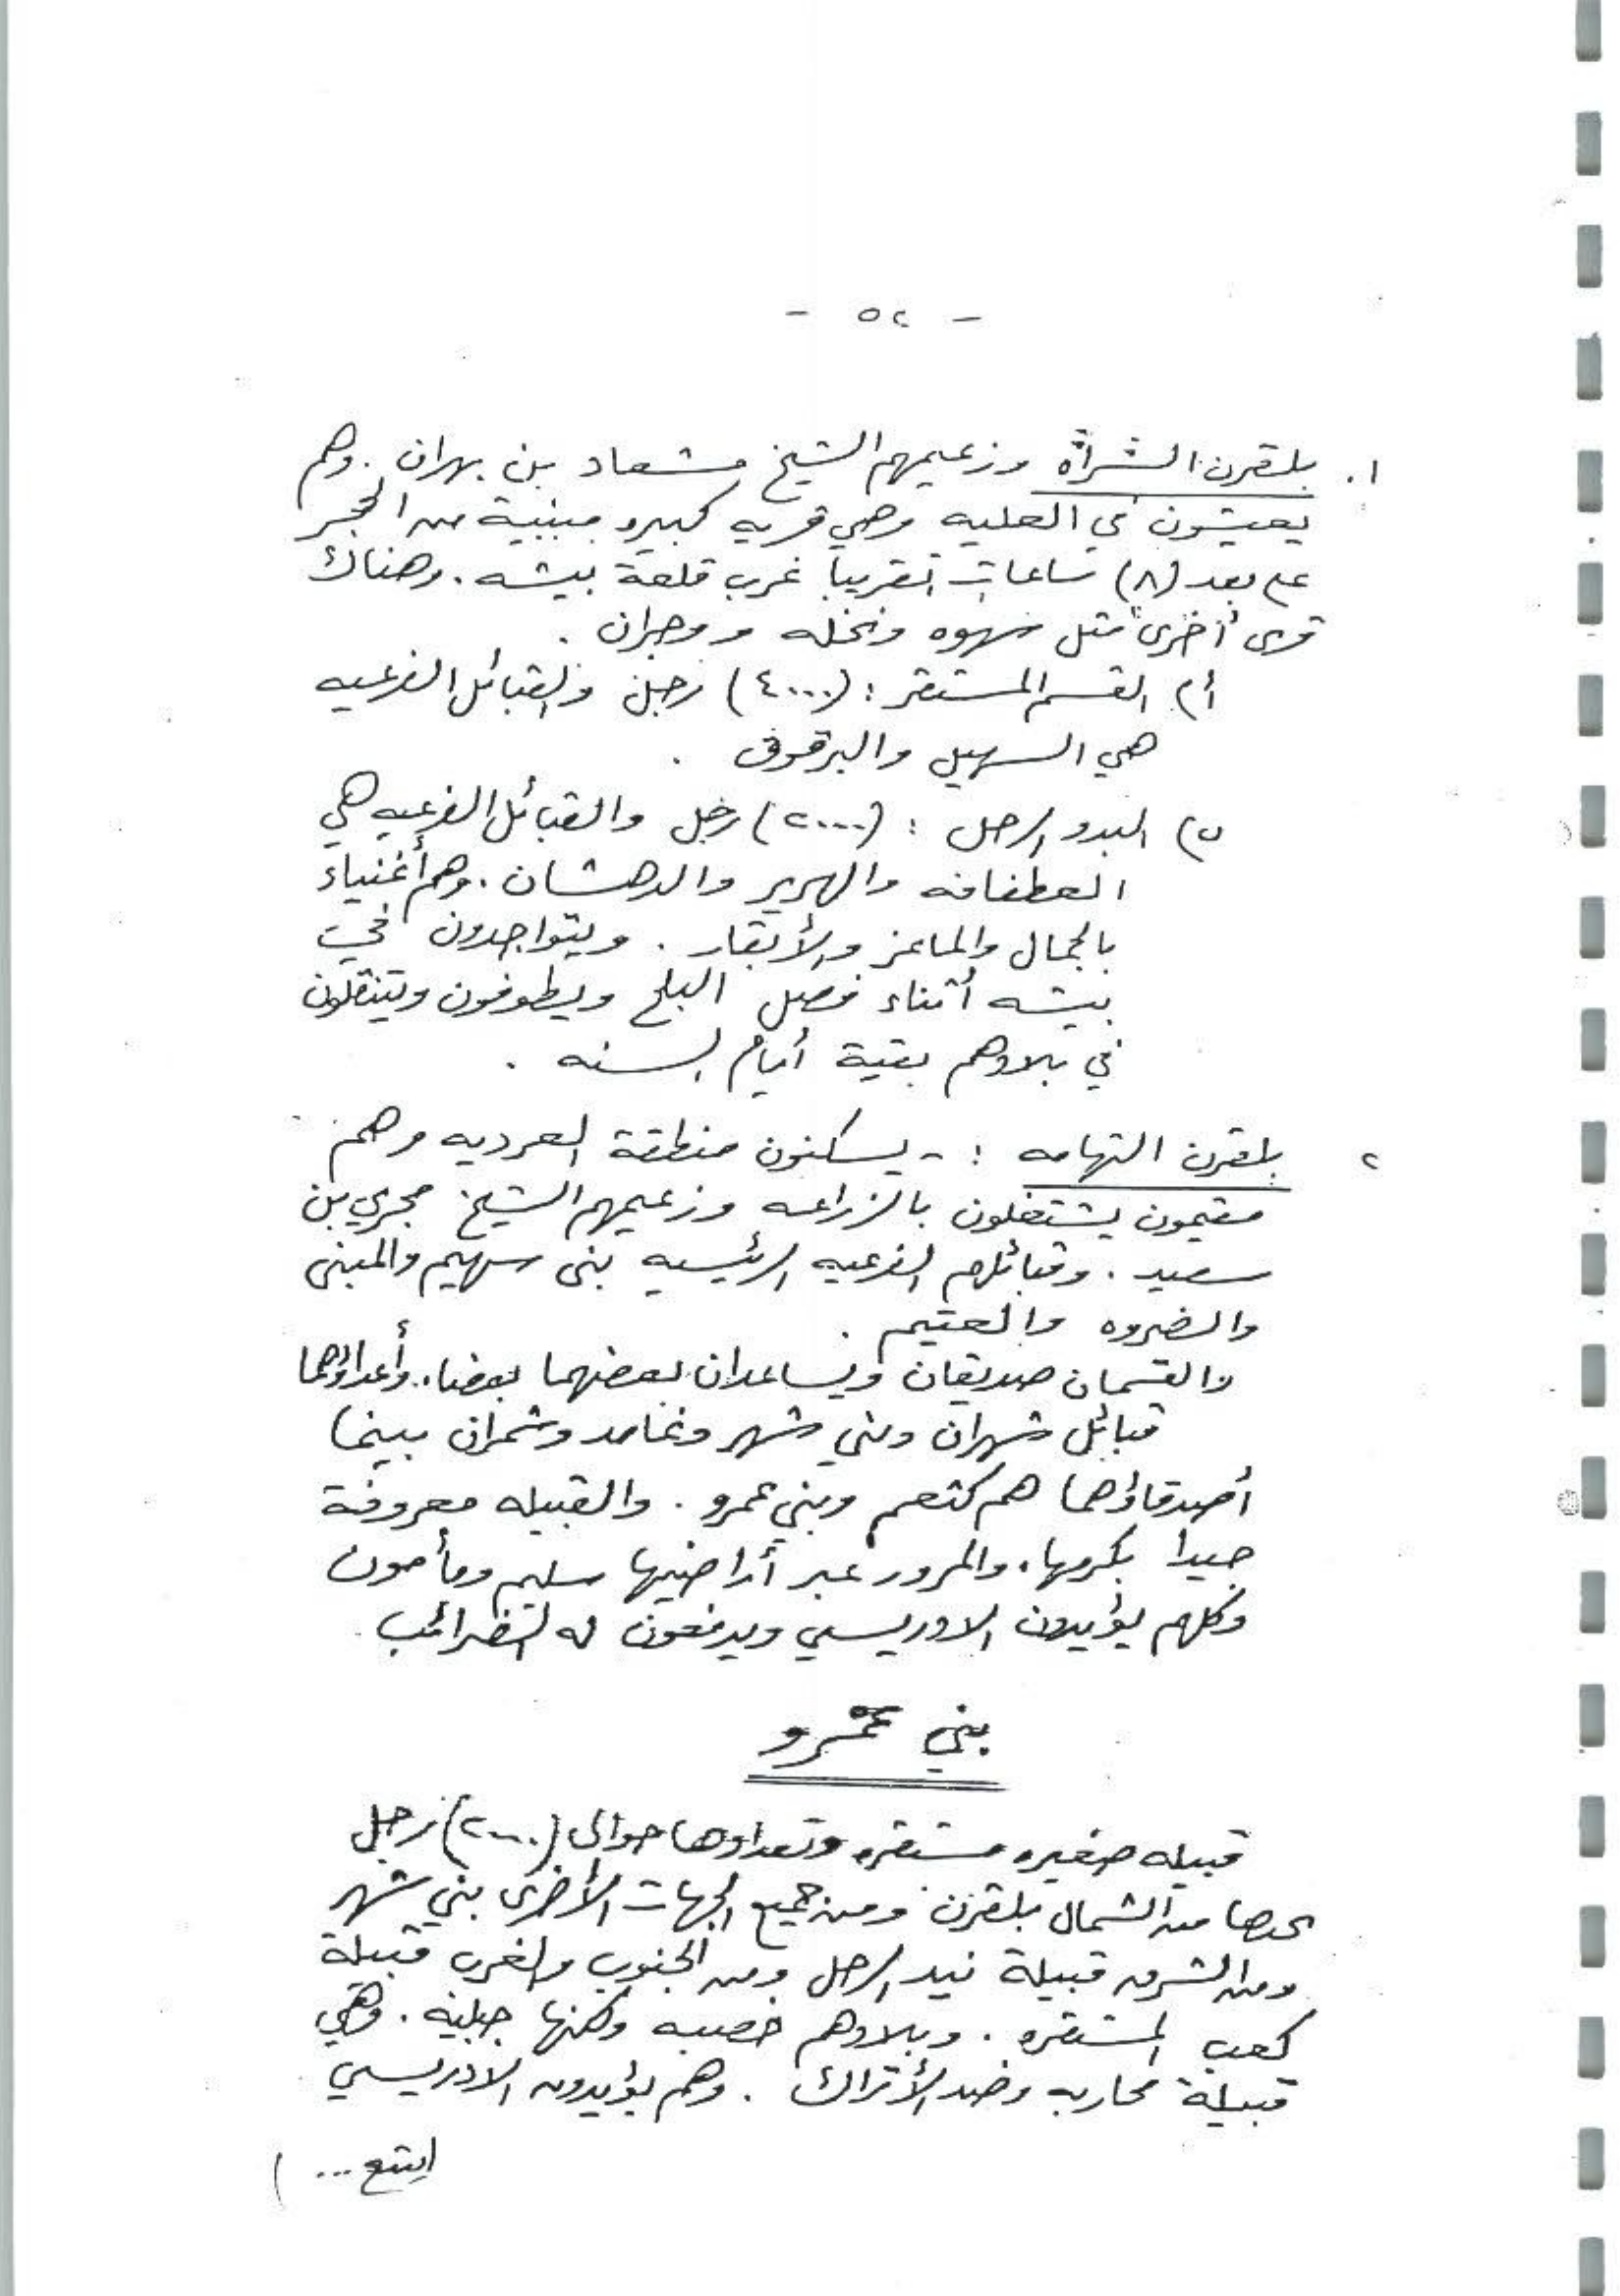 - ٥٢ -
١. بلقرن الشراة وزعيمهم الشيخ مشعاد بن بهران. وهم
يعيشون في العليه وهي قريه كبيره مبنية من الحجر
على بعد (٨) ساعات تقريباً غرب قلعة بيشه. وهناك
قرى أخرى مثل مهوه ونخله ووجران.
أ) القسم المستقر: (٤٠٠٠) رجل والقبائل الفرعيه
هي السهيل والبرقوق.
ب) البدو الرحل: (٢٠٠٠) رجل والقبائل الفرعيه هي
العطفافه والهرير والدهشان. وهم أغنياء
بالجمال والماعز والأبقار. ويتواجدون في
بيشه أثناء فصل البلح ويطوفون ويتنقلون
في بلادهم بقية أيام السنه.
٢ بلقرن التهامه :- يسكنون منطقة العرديه وهم
مقيمون يشتغلون بالزراعه وزعيمهم الشيخ مجري بن
سعيد. وقبائلهم الفرعيه الرئيسيه بنى سهيم والمبنى
والضروه والعتيم.
والقسمان صديقان ويساعدان بعضهما بعضا. وأعداؤهما
قبائل شهران وبني شهر وغامد وشمران بينما
أصدقاؤهما هم كثعم وبني عمرو. والقبيله معروفة
جيدا بكرمها. والمرور عبر أراضيها سليم ومأمون
وكلهم يؤيدون الادريسي ويدفعون له الضرائب.
بني عمرو
قبيله صغيره مستقره وتعدادها حوالى (٢٠٠٠) رجل
يحدها من الشمال بلقرن ومن جميع الجهات الأخرى بني شهر
ومن الشرق قبيلة نيد الرحل ومن الجنوب والغرب قبيلة
كعب المستقره. وبلادهم خصبه ولكنها جبليه. وهي
قبيلة محاربه وضد الأتراك. وهم يؤيدون الادريسي
(يتبع ...)